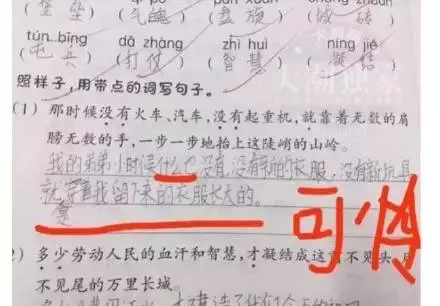 (堡垒)(气魄)(盘旋)(城砖)
tún bīng dǎ zhàng zhì huì níng jié
(屯兵)(打仗)(智慧)(凝结)
照样子,用带点的词写句子。
(1)那时候没有火车、汽车,没有起重机,就靠着无数的肩
膀无数的手,一步一步地抬上这陡峭的山岭。
我的弟弟小时候什么也没有,没有新的衣服,没有新玩具
就穿着我留下来的衣服长大的。
可怜
2)多少劳动人民的血汗和智慧,才凝结成这前不见头、
不见尾的万里长城。